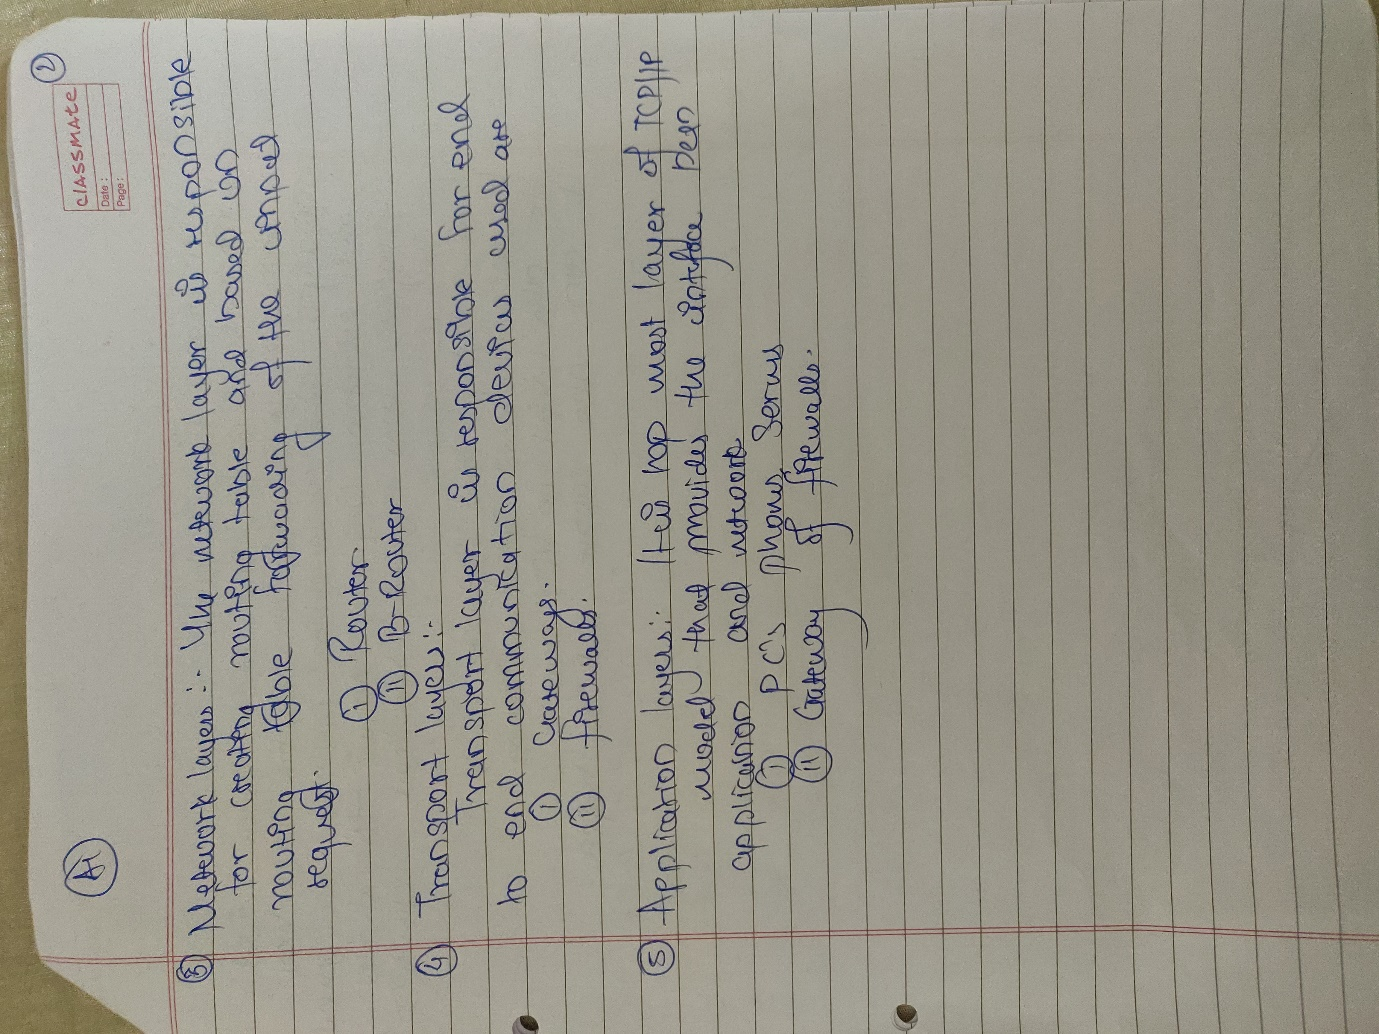 classmate
Date :
Page :
2
A1
3 Network layers :- The network layer is responsible
for creating routing table and based on
routing table forwading of the input
request.
i Router
ii B-Router
4 Transport layer :-
Transport layer is responsible for end
to end communication devices used are
i Gateways.
ii firewalls.
5 Application layers :- It is top most layer of TCP/IP
model that provides the interface
application and network
i PC's phones, Servers
ii Gateway of firewalls.